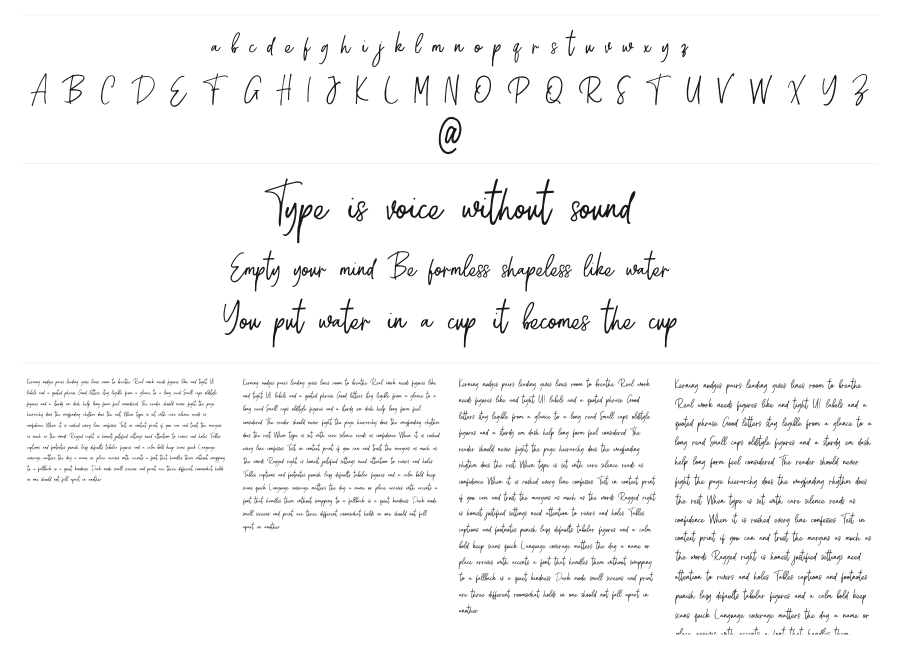 a b c d e f g h i j k l m n o p q r s t u v w x y z
A B C D E F G H I J K L M N O P Q R S T U V W X Y Z
@
Type is voice without sound
Empty your mind Be formless shapeless like water
You put water in a cup it becomes the cup
Kerning nudges pairs leading gives lines room to breathe Real work needs figures like and tight UI
labels and a quoted phrase Good letters stay legible from a glance to a long read Small caps oldstyle
figures and a sturdy em dash help long form feel considered The reader should never fight the page
hierarchy does the wayfinding rhythm does the rest When type is set with care silence reads as
confidence When it is rushed every line confesses Test in context print if you can and trust the margins
as much as the words Ragged right is honest justified settings need attention to rivers and holes Tables
captions and footnotes punish lazy defaults tabular figures and a calm bold keep scans quick Language
coverage matters the day a name or place arrives with accents a font that handles them without swapping
to a fallback is a quiet kindness Dark mode small screens and print are three different rooms what holds
in one should not fall apart in another
Kerning nudges pairs leading gives lines room to breathe Real work needs figures like
and tight UI labels and a quoted phrase Good letters stay legible from a glance to a
long read Small caps oldstyle figures and a sturdy em dash help long form feel
considered The reader should never fight the page hierarchy does the wayfinding rhythm
does the rest When type is set with care silence reads as confidence When it is rushed
every line confesses Test in context print if you can and trust the margins as much as
the words Ragged right is honest justified settings need attention to rivers and holes
Tables captions and footnotes punish lazy defaults tabular figures and a calm bold keep
scans quick Language coverage matters the day a name or place arrives with accents a
font that handles them without swapping to a fallback is a quiet kindness Dark mode
small screens and print are three different rooms what holds in one should not fall
apart in another
Kerning nudges pairs leading gives lines room to breathe Real work
needs figures like and tight UI labels and a quoted phrase Good
letters stay legible from a glance to a long read Small caps oldstyle
figures and a sturdy em dash help long form feel considered The
reader should never fight the page hierarchy does the wayfinding
rhythm does the rest When type is set with care silence reads as
confidence When it is rushed every line confesses Test in context print
if you can and trust the margins as much as the words Ragged right
is honest justified settings need attention to rivers and holes Tables
captions and footnotes punish lazy defaults tabular figures and a calm
bold keep scans quick Language coverage matters the day a name or
place arrives with accents a font that handles them without swapping
to a fallback is a quiet kindness Dark mode small screens and print
are three different rooms what holds in one should not fall apart in
another
Kerning nudges pairs leading gives lines room to breathe
Real work needs figures like and tight UI labels and a
quoted phrase Good letters stay legible from a glance to a
long read Small caps oldstyle figures and a sturdy em dash
help long form feel considered The reader should never
fight the page hierarchy does the wayfinding rhythm does
the rest When type is set with care silence reads as
confidence When it is rushed every line confesses Test in
context print if you can and trust the margins as much as
the words Ragged right is honest justified settings need
attention to rivers and holes Tables captions and footnotes
punish lazy defaults tabular figures and a calm bold keep
scans quick Language coverage matters the day a name or
place arrives with accents a font that handles them